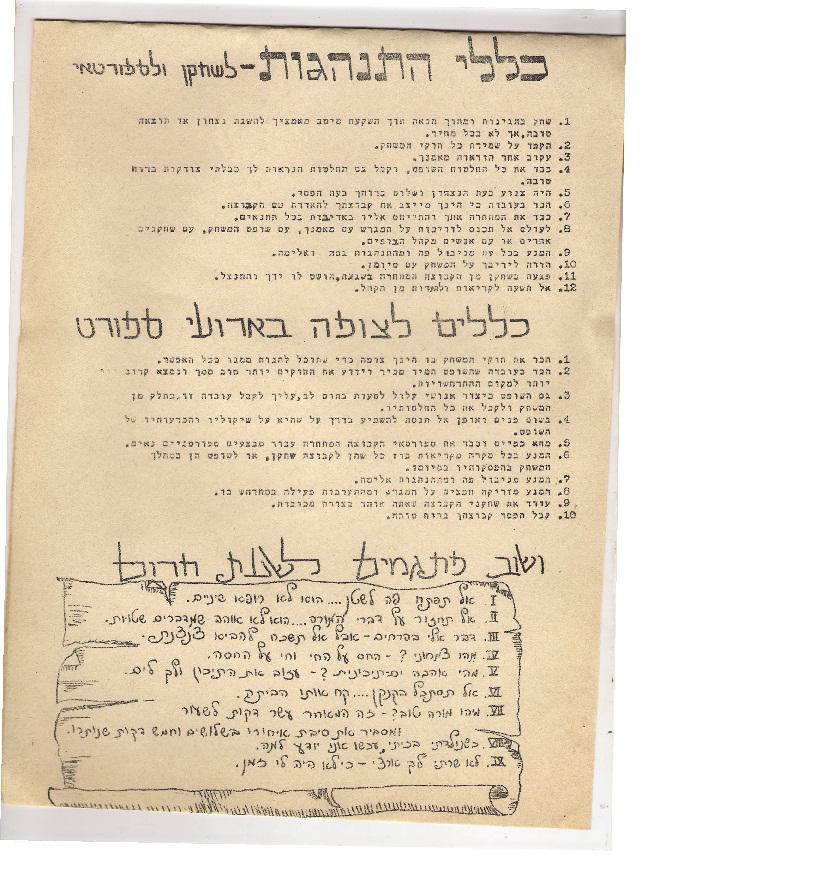 כללי התנהגות - לשחקן ולספורטאי
1. שחק בהגינות ומתוך הנאה תוך השקעת מיטב מאמציך להשגת נצחון או תוצאה
טובה, אך לא בכל מחיר.
2. הקפד על שמירת כל חוקי המשחק.
3. עקוב אחר הוראות מאמנך.
4. כבד את כל החלטות השופט, וקבל גם החלטות הנראות לך כבלתי צודקות ברוח
טובה.
5. היה צנוע בעת הנצחון ושלוט ברוחך בעת הפסד.
6. הכר בעובדה כי הינך מייצג את קבוצתך להזדהות עם הקבוצה.
7. כבד את המתחרה אתך והתייחס אליו באדיבות בכל התנאים.
8. לעולם אל תכנס לויכוחים על המגרש עם מאמנך, עם שופט המשחק, עם שחקנים
אחרים או עם אנשים מקהל הצופים.
9. המנע בכל עת מניבול פה ומהתנהגות גסה ואלימה.
10. הודה ליריבך על המשחק עם סיומו.
11. פגעת בשחקן מן הקבוצה המתחרה בשגגה, הושט לו ידך והתנצל.
12. אל תשעה לקריאות ולהערות מן הקהל.
כללים לצופה בארועי ספורט
1. הכר את חוקי המשחק בו הינך צופה כדי שתוכל להנות ממנו ככל האפשר.
2. הכר בעובדה שהשופט תמיד מכיר ויודע את החוקים יותר טוב ממך ונמצא קרוב
יותר למקום ההתרחשויות.
3. גם השופט כיצור אנושי עלול לטעות בתום לב, עליך לקבל עובדה זו, כחלק מן
המשחק ולקבל את כל החלטותיו.
4. בשום פנים ואופן אל תנסה להשפיע בדרך על שהיא על שיקוליו והכרעותיו של
השופט.
5. מחא כפיים וכבד את ספורטאי הקבוצה המתחרה עבור מבצעים ספורטיביים נאים.
6. המנע בכל מקרה מקריאות בוז כל שהן לקבוצה שחקן, או לשופט הן במהלך
המשחק בהפסקותיו ובסיומו.
7. המנע מניבול פה ומהתנהגות אלימה.
8. המנע מזריקת חפצים על המגרש ומהתערבות פעילה במתרחש בו.
9. עודד את שחקני הקבוצה שאתה אוהד בצורה מכובדת.
10. קבל הפסד קבוצתך ברוח טובה.
ושוב פתגמים לשעת חרום
I. אל תפתח פה לשטן.... הוא לא רופא שיניים.
II. אל תחזור על דברי המורה.... הוא לא אוהב שמדברים שטויות.
III. דבר אלי בפרחים - אבל אל תשכח להביא צנצנת.
IV. מהו צמחוני? - החס על החי וחי על החסה.
V. מהי אהבה ים-תיכונית? - עזוב את התיכון ולך לים.
VI. אל תסתכל בקנקן.... קח אותו הביתה.
VII. מיהו מורה טוב? - זה המאחר עשר דקות לשעור
ומסביר את סיבת איחורו בשלושים וחמש דקות שנותרו.
VIII. כשנולדתי בכיתי, עכשו אני יודע למה.
IX. לא שרתי לך ארצי - כי לא היה לי זמן.